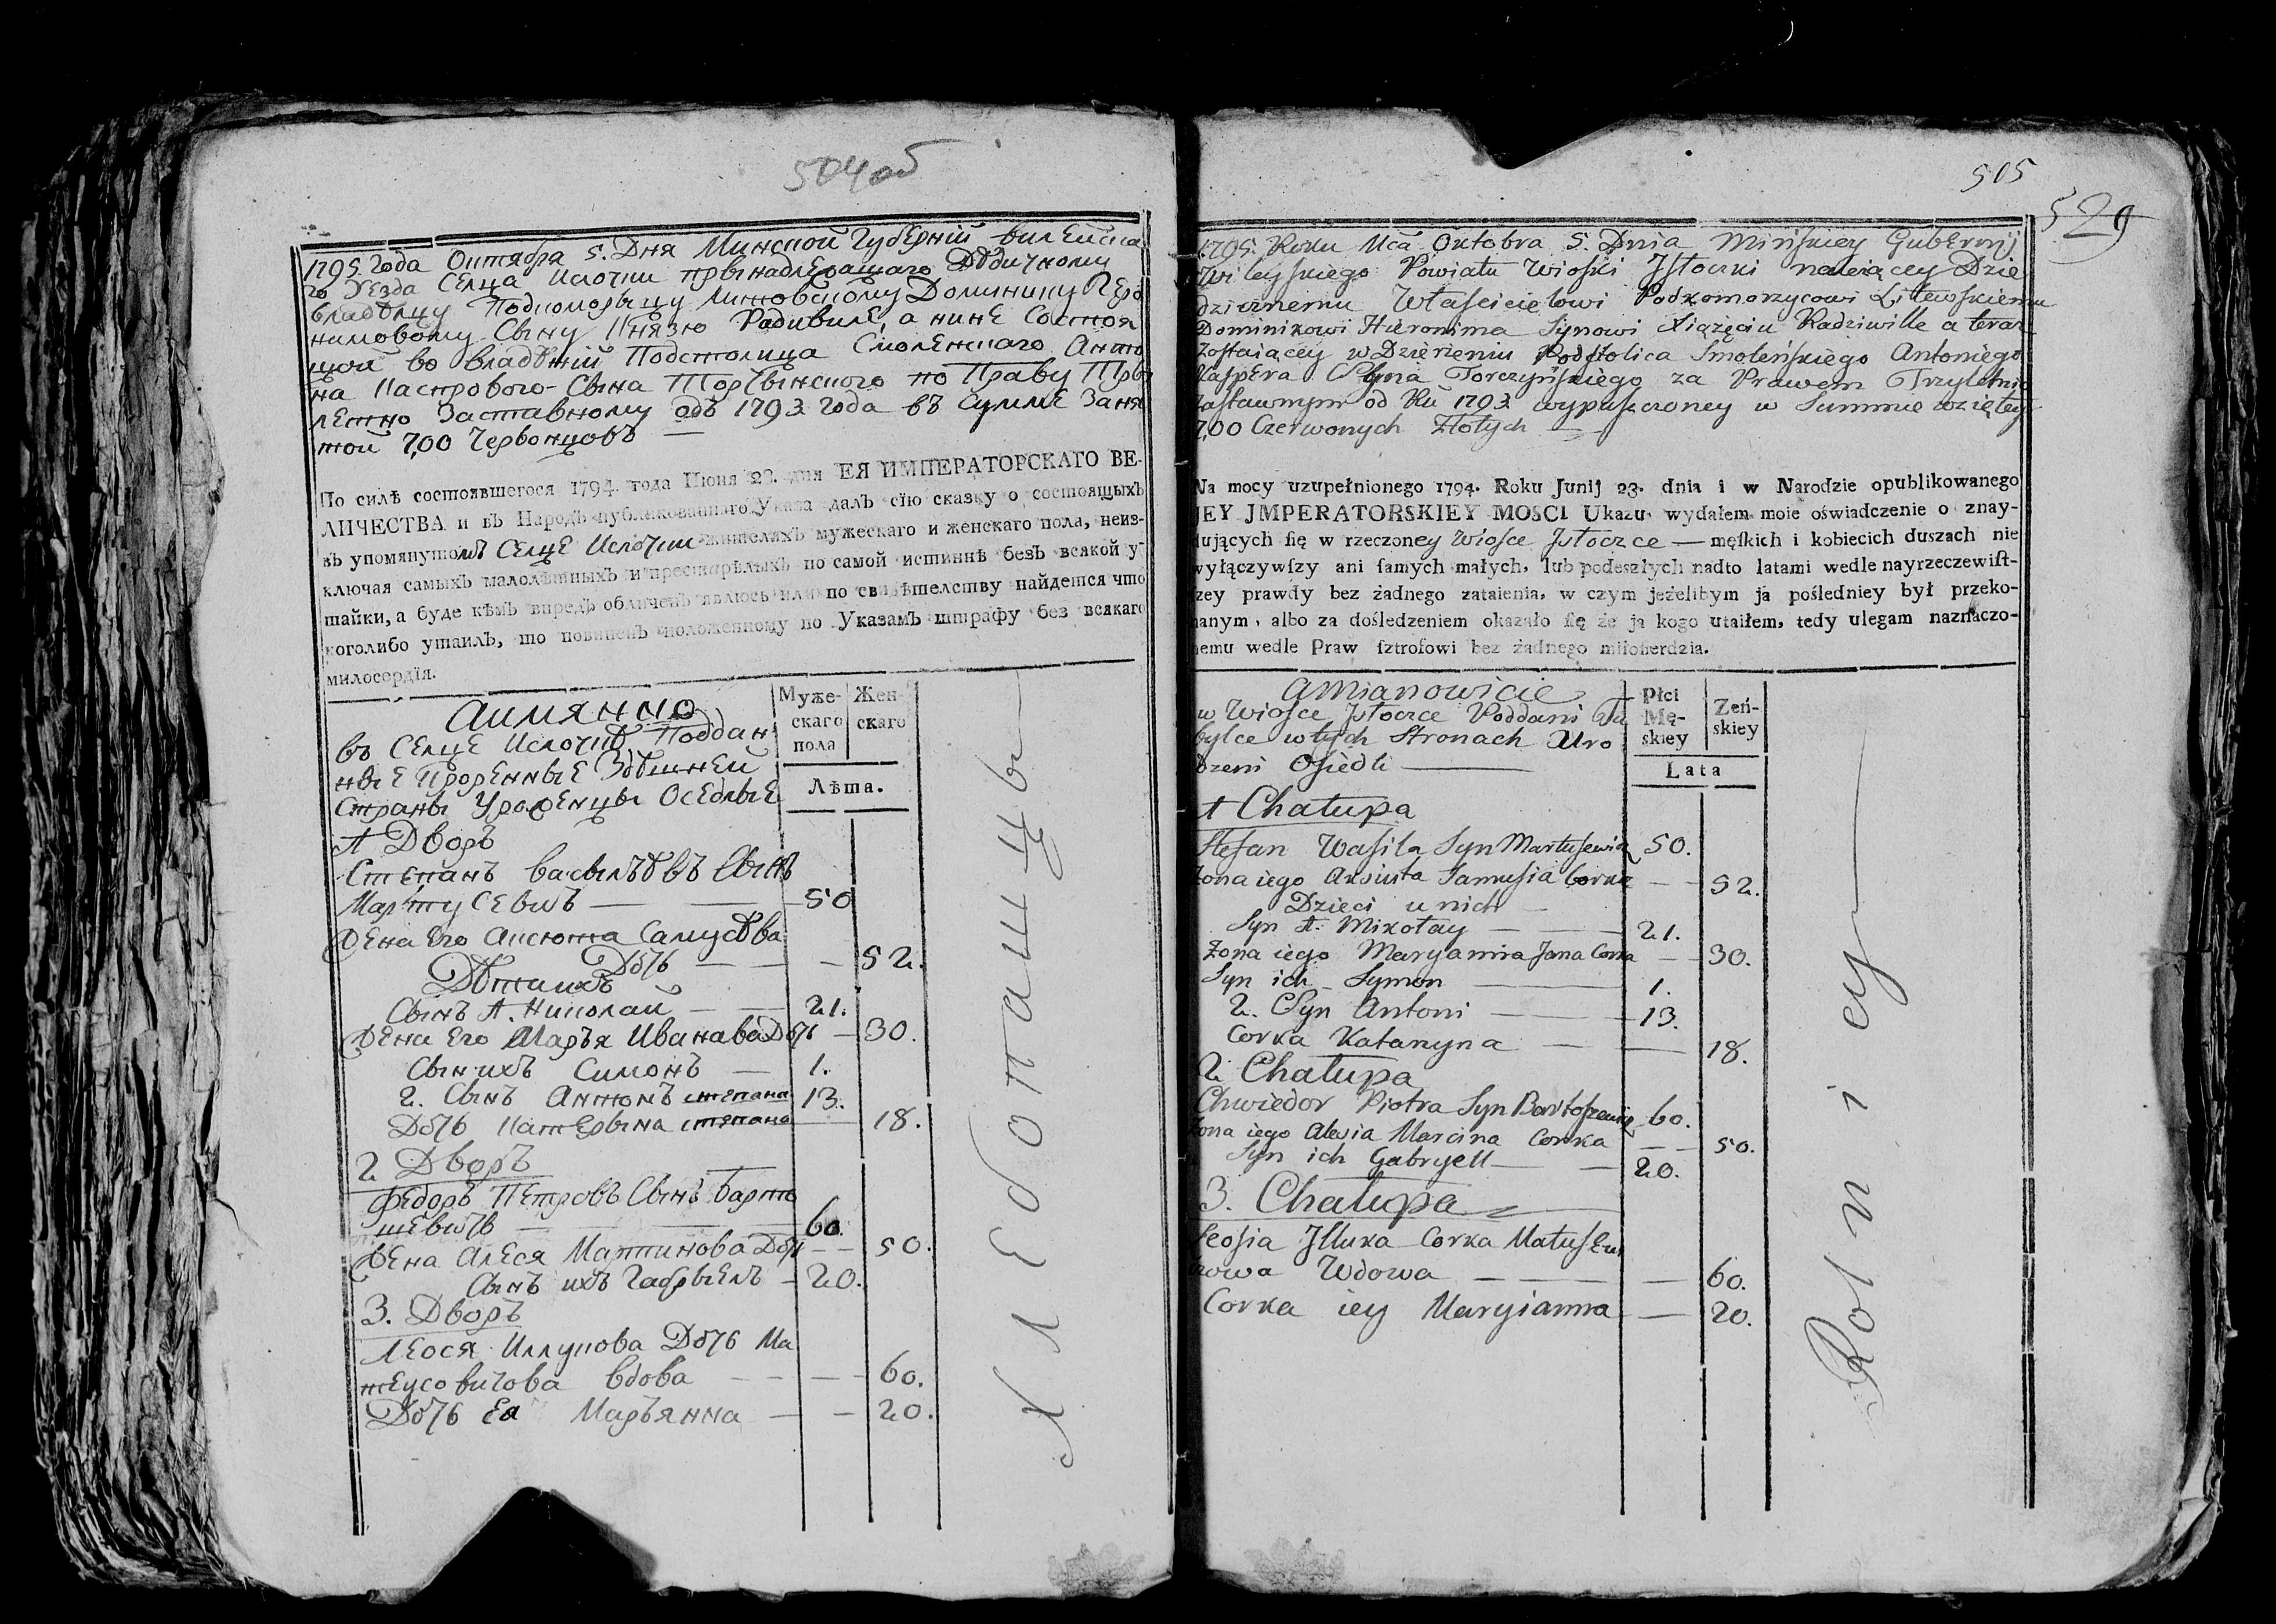 504об
1795 Года Октября 5. Дня Минской Губернїи Вилейска
го Уезда Селца Источки прынадлежащаго Дѣдичному
владѣлцу Подкоморыцу Литовскому Доминику Геро
нимовому Сыну Князю Радивилѣ, а нинѣ Состоя
щой во владѣнїи Подстолица Смоленскаго Анто
на Касперового Сына Торчынского по Праву Тры
лѣтно Заставному одъ 1793 Года въ Суммѣ Заня
той 700 Червонцовъ —
По силѣ состоявшегося 1794. года Июня 23. дня ЕЯ ИМПЕРАТОРСКАГО ВЕ-
ЛИЧЕСТВА и въ Народъ публикованнаго Указа далъ сїю сказку о состоящыхъ
въ упомянутомъ Селцѣ Источки жителяхъ мужескаго и женскаго пола, неиз-
ключая самыхъ малолѣтныхъ и престарѣлыхъ по самой истиннѣ безъ всякой у-
тайки, а буде кѣмъ впредь обличенъ явлюсь или по свидѣтелству найдется что
коголибо утаилъ, то повиненъ положенному по Указамъ штрафу без всякаго
милосердїя.
Аимянно
въ Селцѣ Источкѣ Поддан
ные Прожённые Здѣшней
Страны Уроженцы Оседлые
Муже-
скаго
пола
Жен-
скаго
Лѣта.
1 Дворъ
Степанъ Васылѣвъ Сынъ
Мартусевичъ — — 50
Жена Его Аксюта Самусѣва
Дочь — — 52.
Дѣти ихъ
Сынъ 1. Николай — — 21.
Жена Его Марья Иванава Дочь — 30.
Сын ихъ Симонъ — 1.
2. Сынъ Антонъ степана 13.
Дочь Катерына степана — 18.
2 Дворъ
Федоръ Петровъ Сынъ Барто
шевичъ — — 60.
Жена Алеся Мартинова Дочь — 50.
Сынъ ихъ Габрыель — 20.
3. Дворъ
Леося Иллукова Дочь Ма
теусовичова Вдова — — 60.
Дочь Ея Марьянна — — 20.
Хлебопашцы
505
529
1795. Roku Mca Oktobra 5. Dnia Mińskiey Gubernij
Wileyskiego Powiatu Wioski Jstoczki należącey Dzie
dzicznemu Właścicielowi Podkomorzycowi Litewskiemu
Dominikowi Hieronima Synowi Xiążęciu Radziwille a teraz
Zostaiącey w Dzierżeniu Podstolica Smoleńskiego Antoniego
Kaspera Syna Torczyńskiego za Prawem Trzyletnio
Zastawnym od Ru 1793 wypuszczoney w Summie wziętey
700 Czerwonych Złotych —
Na mocy uzupełnionego 1794. Roku Junij 23. dnia i w Narodzie opublikowanego
JEY JMPERATORSKIEY MOSCI Ukazu wydałem moie oświadczenie o znay-
dujących ſię w rzeczoney Wiosce Jstoczce — męſkich i kobiecich duszach nie
wyłączywſzy ani ſamych małych, lub podeszłych nadto latami wedle nayrzeczewiſt-
ſzey prawdy bez żadnego zataienia, w czym jeżelibym ja pośledniey był przeko-
nanym, albo za dośledzeniem okazało ſię że ja kogo utaiłem, tedy ulegam naznaczo-
nemu wedle Praw ſztrofowi bez żadnego miłoſierdzia.
Amianowicie
w Wiosce Jstoczce Poddani Tu
bylce w tych Stronach Uro
dzeni Osiedli —
Płci
Mę-
skiey
Zeń-
skiey
Lata
1 Chałupa
Stefan Wasila Syn Martusewicz 50.
Żona iego Axiuta Samusia Corka — 52.
Dzieci u nich —
Syn 1. Mikołay — — 21.
Żona iego Maryanna Jana Corka — 30.
Syn ich Symon — 1.
2. Syn Antoni — 13.
Corka Katarzyna — — 18.
2 Chałupa
Chwiedor Piotra Syn Bartoszewicz 60.
Żona iego Alesia Marcina Corka — 50.
Syn ich Gabryell — — 20.
3. Chałupa
Leosia Jlluka Corka Matusew
iczowa Wdowa — — 60.
Corka iey Maryianna — 20.
Rolniey